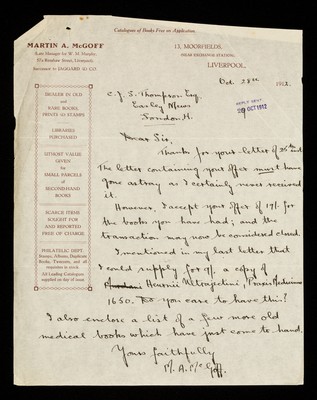 Catalogues of Books Free on Application.
MARTIN A. McGOFF
(Late Manager for W. M. Murphy,
Renshaw Street, Liverpool)
Successor to JAGGARD & CO.
13, MOORFIELDS,
(NEAR EXCHANGE STATION)
LIVERPOOL,
Oct. 28th 1912.
DEALER IN OLD
and
RARE BOOKS
PRINTS & STAMPS
LIBRARIES
PURCHASED
UTMOST VALUE
GIVEN
for
SMALL PARCELS
of
SECOND-HAND
BOOKS
SCARCE ITEMS
SOUGHT FOR
AND REPORTED
FREE OF CHARGE
PHILATELIC DEPT.
Stamps, Albums, Duplicate
Books, Tweezers, and all
requisites in stock.
All Leading Catalogues
supplied on day of issue.
C. J. S. Thompson Esq.
London W.
REPLY SENT
29 OCT 1912
Dear Sir,
Thanks for your letter of 25th inst.
The letter containing your offer must have
gone astray as I certainly never received
it.
However, I accept your offer of 17/- for
the books you have had; and the
transaction may now be considered closed.
I mentioned in my last letter that
I could supply for 9/- a copy of
Heurnii Ultrajectini, Praxis Medicinæ
1650. Do you care to have this?
I also enclose a list of a few more old
medical books which have just come to hand.
Yours faithfully
M. A. McGoff.